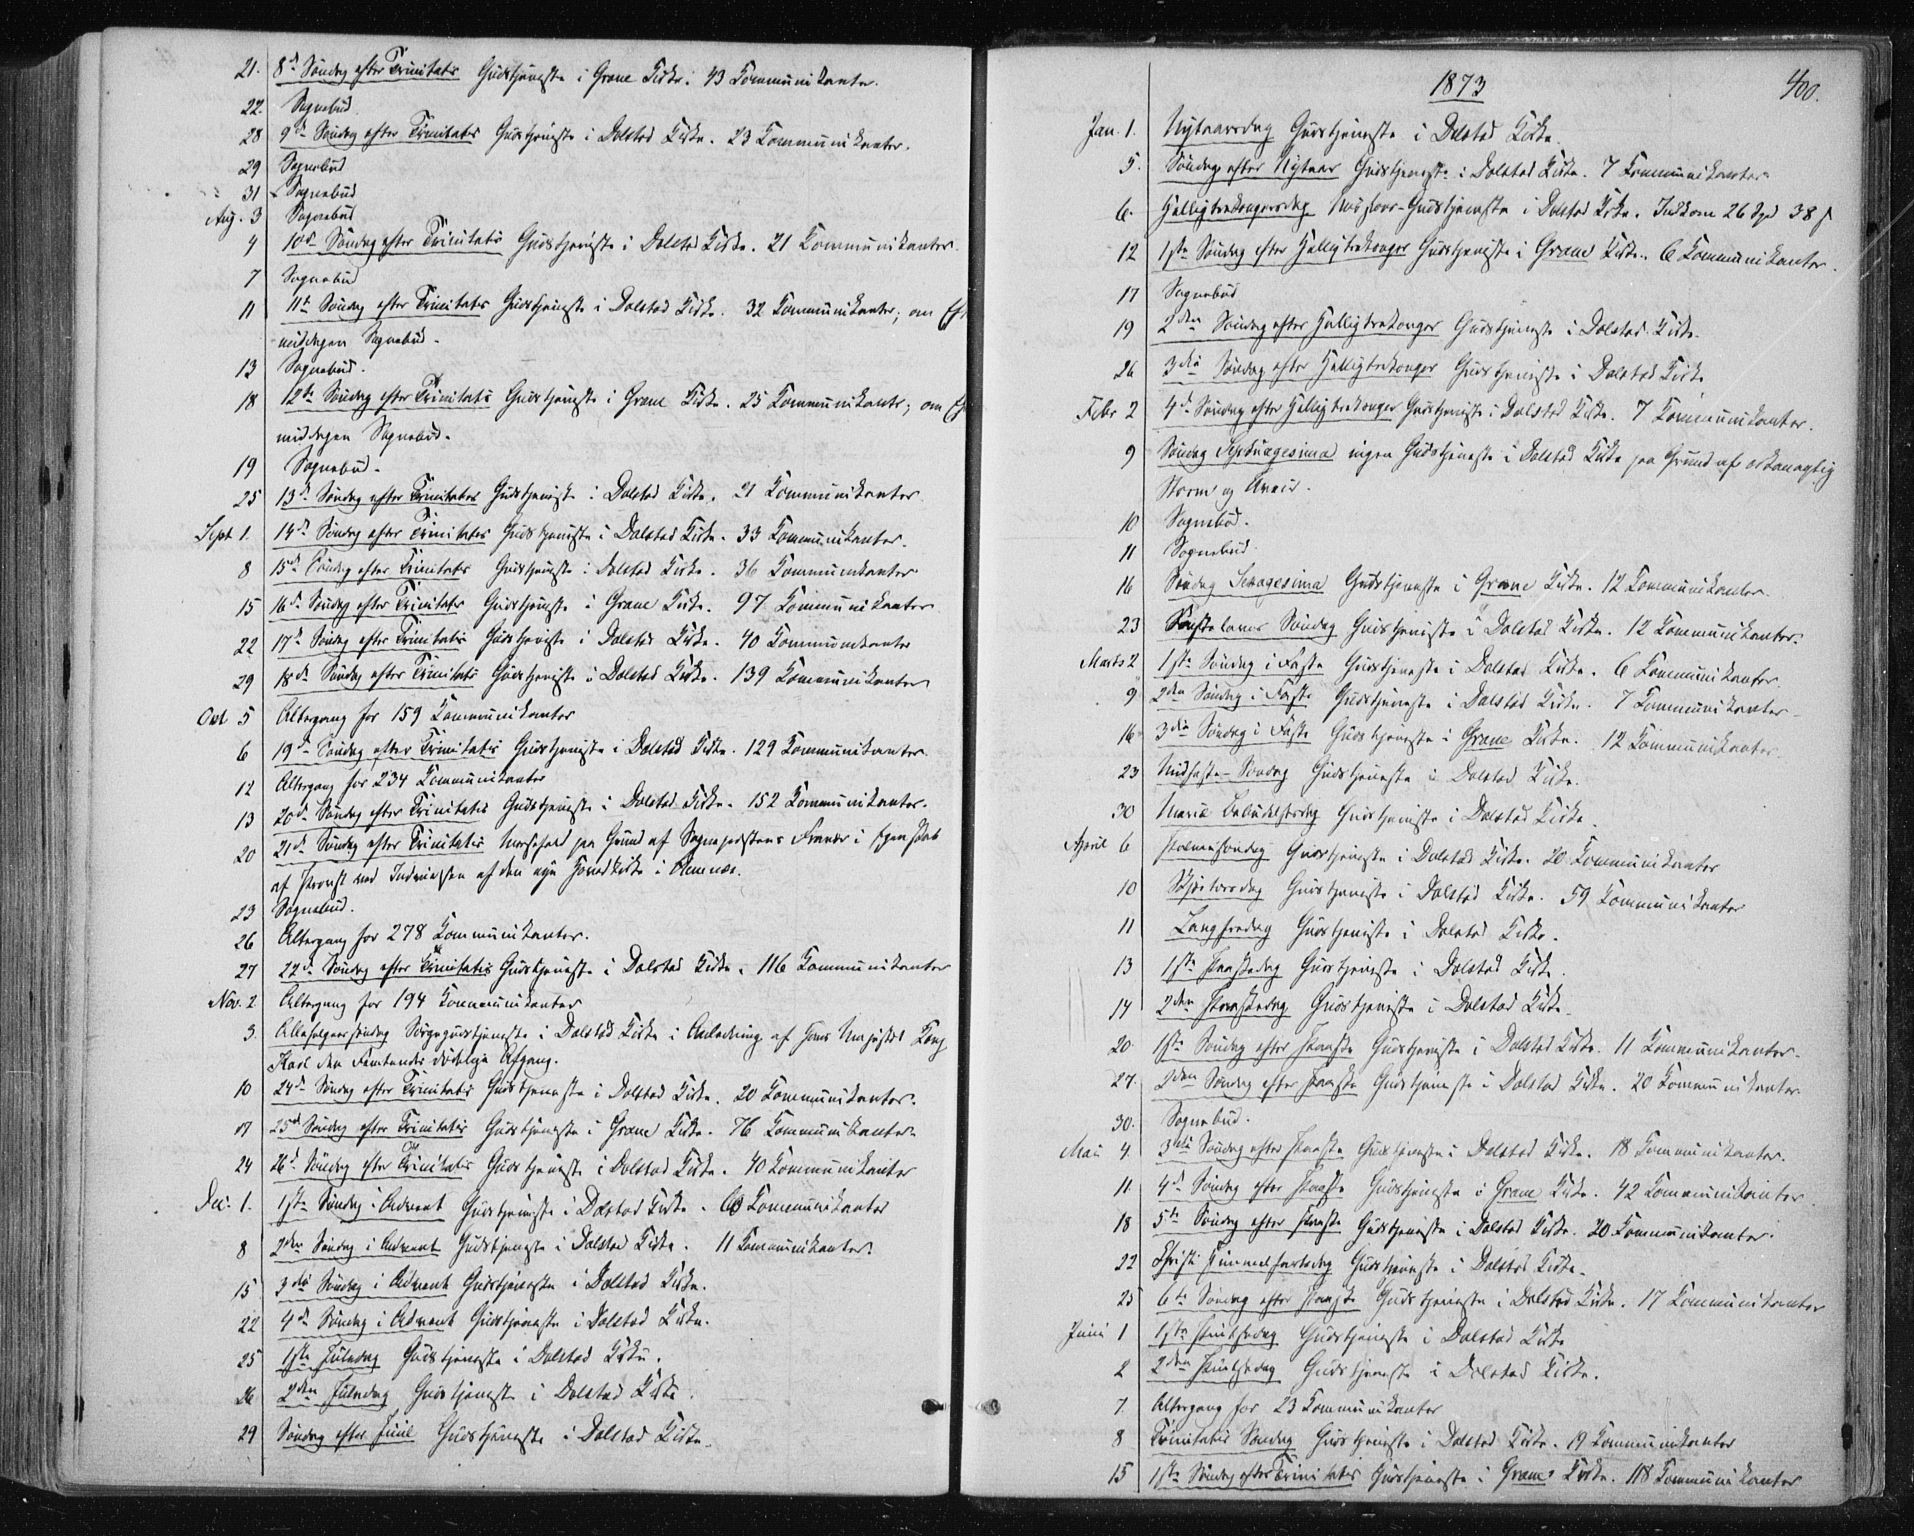 21. 8de Søndag efter Trinitatis Gudstjeneste i Grane Kirke. 43 Kommunikanter.
22. Sognebud
28 9de Søndag efter Trinitatis Gudstjeneste i Dolstad Kirke. 23 Kommunikanter.
29 Sognebud
31 Sognebud
Aug. 3 Sognebud
4 10de Søndag efter Trinitatis Gudstjeneste i Dolstad Kirke. 21 Kommunikanter.
7 Sognebud
11 11te Søndag efter Trinitatis Gudstjeneste i Dolstad Kirke. 32 Kommunikanter; om Ef
middagen Sognebud.
13 Sognebud.
18 12te Søndag efter Trinitatis Gudstjeneste i Grane Kirke. 25 Kommunikanter; om Ef
middagen Sognebud.
19 Sognebud.
25 13de Søndag efter Trinitatis Gudstjeneste i Dolstad Kirke. 21 Kommunikanter
Sept 1. 14de Søndag efter Trinitatis Gudstjeneste i Dolstad Kirke. 33 Kommunikanter.
8 15de Søndag efter Trinitatis Gudstjeneste i Dolstad Kirke. 36 Kommunikanter
15 16de Søndag efter Trinitatis Gudstjeneste i Grane Kirke. 97 Kommunikanter
22 17de Søndag efter Trinitatis Gudstjeneste i Dolstad Kirke. 40 Kommunikanter
29 18de Søndag efter Trinitatis Gudstjeneste i Dolstad Kirke. 139 Kommunikanter
Oct 5 Altergang for 159 Kommunikanter
6 19de Søndag efter Trinitatis Gudstjeneste i Dolstad Kirke. 129 Kommunikanter
12 Altergang for 234 Kommunikanter
13 20de Søndag efter Trinitatis Gudstjeneste i Dolstad Kirke. 152 Kommunikanter.
20 21de Søndag efter Trinitatis Messefald paa Grund af Sognepræstens Fravær i Egenskab
af Provst ved Indvielsen af den nye Hovedkirke i Hemnæs.
23 Sognebud.
26 Altergang for 278 Kommunikanter.
27 22de Søndag efter Trinitatis Gudstjeneste i Dolstad Kirke. 116 Kommunikanter
Nov. 2 Altergang for 194 Kommunikanter
3. Allehelgens Søndag Sørgegudstjeneste i Dolstad Kirke i Anledning af Hans Majestæt Kong
Karl den Femtendes dødelige Afgang.
10 24de Søndag efter Trinitatis Gudstjeneste i Dolstad Kirke. 20 Kommunikanter.
17 25de Søndag efter Trinitatis Gudstjeneste i Grane Kirke. 76 Kommunikanter
24 26de Søndag efter Trinitatis Gudstjeneste i Dolstad Kirke. 40 Kommunikanter
Dec. 1. 1ste Søndag i Advent Gudstjeneste i Dolstad Kirke. Kommunikanter
8 2den Søndag i Advent Gudstjeneste i Dolstad Kirke. 11 Kommunikanter.
15 3die Søndag i Advent Gudstjeneste i Dolstad Kirke.
22 4de Søndag i Advent Gudstjeneste i Dolstad Kirke.
25 1ste Juledag Gudstjeneste i Dolstad Kirke.
26 2den Juledag Gudstjeneste i Dolstad Kirke.
29 Søndag efter Juul Gudstjeneste i Dolstad Kirke.
1873 400.
Jan. 1. Nytaarsdag Gudstjeneste i Dolstad Kirke.
5. Søndag efter Nytaar Gudstjeneste i Dolstad Kirke. 7 Kommunikanter
6. Helligtrekongersdag Gudstjeneste i Dolstad Kirke. Indkom 26 Spd 38 ß
12 1ste Søndag efter Helligtrekonger Gudstjeneste i Grane Kirke. 6 Kommunikanter.
17 Sognebud
19 2den Søndag efter Helligtrekonger Gudstjeneste i Dolstad Kirke.
26 3die Søndag efter Helligtrekonger Gudstjeneste i Dolstad Kirke
Febr 2 4de Søndag efter Helligtrekonger Gudstjeneste i Dolstad Kirke. 7 Kommunikanter.
9 Søndag Septuagesima ingen Gudstjeneste i Dolstad Kirke paa Grund af orkanagtig
Storm og Uveir.
10 Sognebud.
11 Sognebud.
16 Søndag Sexagesima Gudstjeneste i Grane Kirke. 12 Kommunikanter.
23 Fastelavns Søndag Gudstjeneste i Dolstad Kirke. 12 Kommunikanter.
Marts 2 1ste Søndag i Faste Gudstjeneste i Dolstad Kirke. 6 Kommunikanter
9 2den Søndag i Faste Gudstjeneste i Dolstad Kirke. 7 Kommunikanter
16 3die Søndag i Faste Gudstjeneste i Grane Kirke. 12 Kommunikanter
23 Midfaste-Søndag Gudstjeneste i Dolstad Kirke.
30 Mariæ Bebudelsesdag Gudstjeneste i Dolstad Kirke.
April 6 Palmesøndag Gudstjeneste i Dolstad Kirke. 20 Kommunikanter
10 Skjertorsdag Gudstjeneste i Dolstad Kirke. 59 Kommunikanter
11 Langfredag Gudstjeneste i Dolstad Kirke.
13 1ste Paaskedag Gudstjeneste i Dolstad Kirke.
14 2den Paaskedag Gudstjeneste i Dolstad Kirke.
20 1ste Søndag efter Paaske Gudstjeneste i Dolstad Kirke. 11 Kommunikanter.
27. 2den Søndag efter Paaske Gudstjeneste i Dolstad Kirke. 20 Kommunikanter.
30. Sognebud.
Mai 4 3die Søndag efter Paaske Gudstjeneste i Dolstad Kirke. 18 Kommunikanter.
11 4de Søndag efter Paaske Gudstjeneste i Grane Kirke. 42 Kommunikanter
18 5te Søndag efter Paaske Gudstjeneste i Dolstad Kirke. 20 Kommunikanter.
22 Christi Himmelfartsdag Gudstjeneste i Dolstad Kirke.
25 6te Søndag efter Paaske Gudstjeneste i Dolstad Kirke. 17 Kommunikanter
Juni 1 1ste Pintsedag Gudstjeneste i Dolstad Kirke
2 2den Pintsedag Gudstjeneste i Dolstad Kirke.
7. Altergang for 23 Kommunikanter
8 Trinitatis Søndag Gudstjeneste i Dolstad Kirke. 19 Kommunikanter
15 1ste Søndag efter Trinitatis Gudstjeneste i Grane Kirke. 118 Kommunikanter